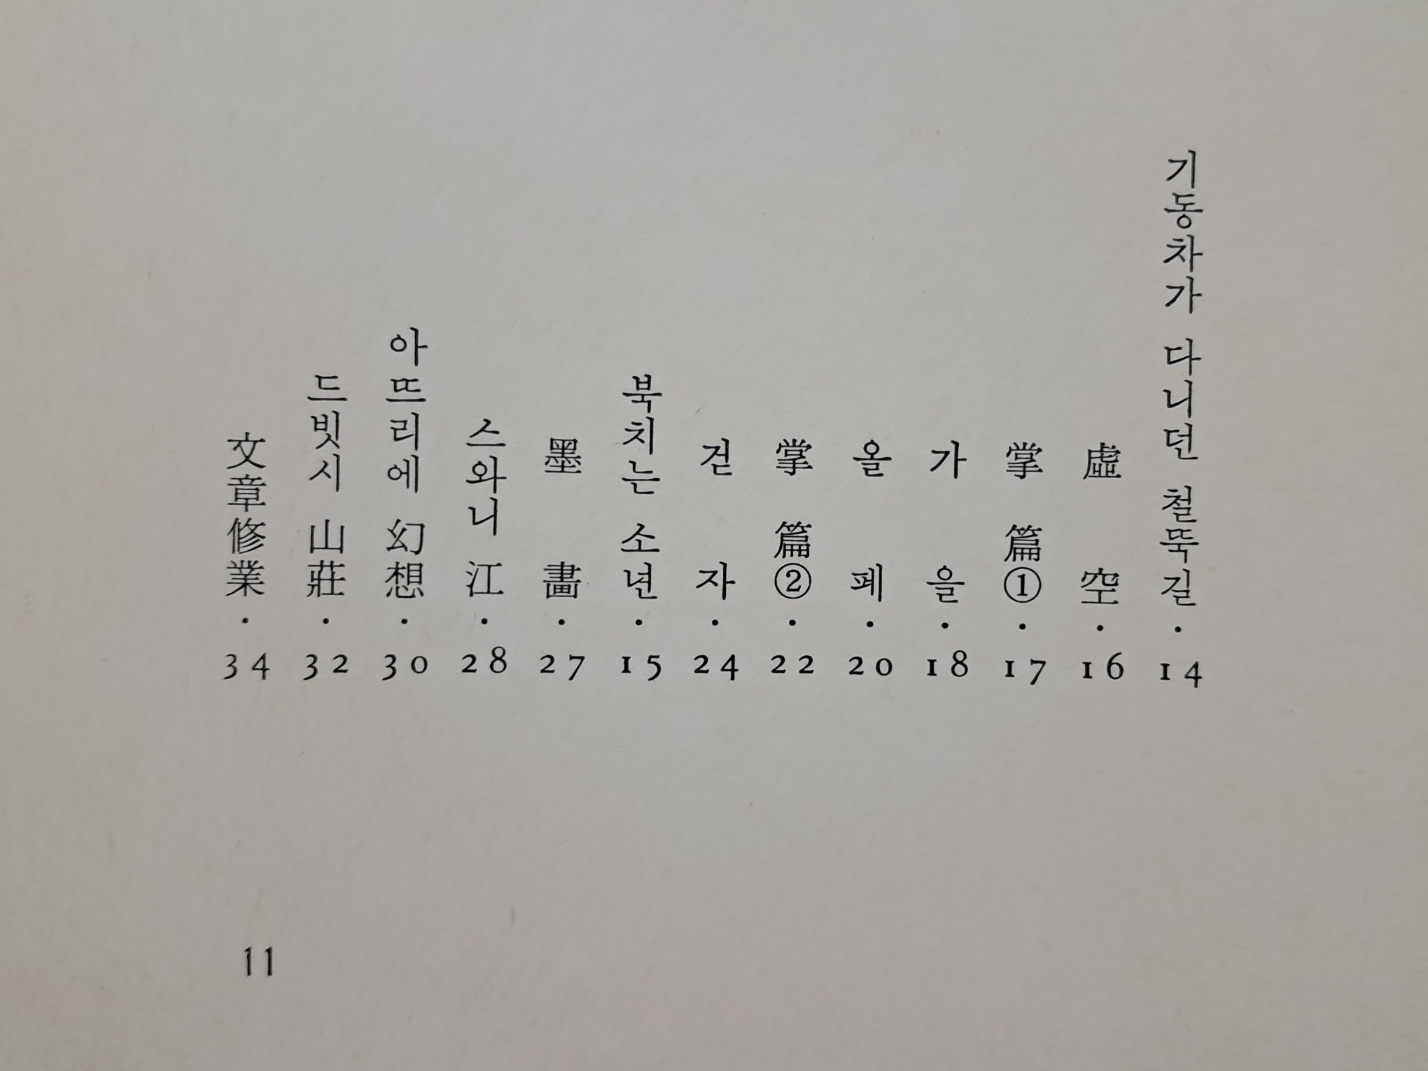 기동차가 다니던 철뚝길 · 14
虛空 · 16
掌篇① · 17
가을 · 18
올페 · 20
掌篇② · 22
걷자 · 24
북치는 소년 · 15
墨畵 · 27
스와니 江 · 28
아뜨리에 幻想 · 30
드빗시 山莊 · 32
文章修業 · 34
11